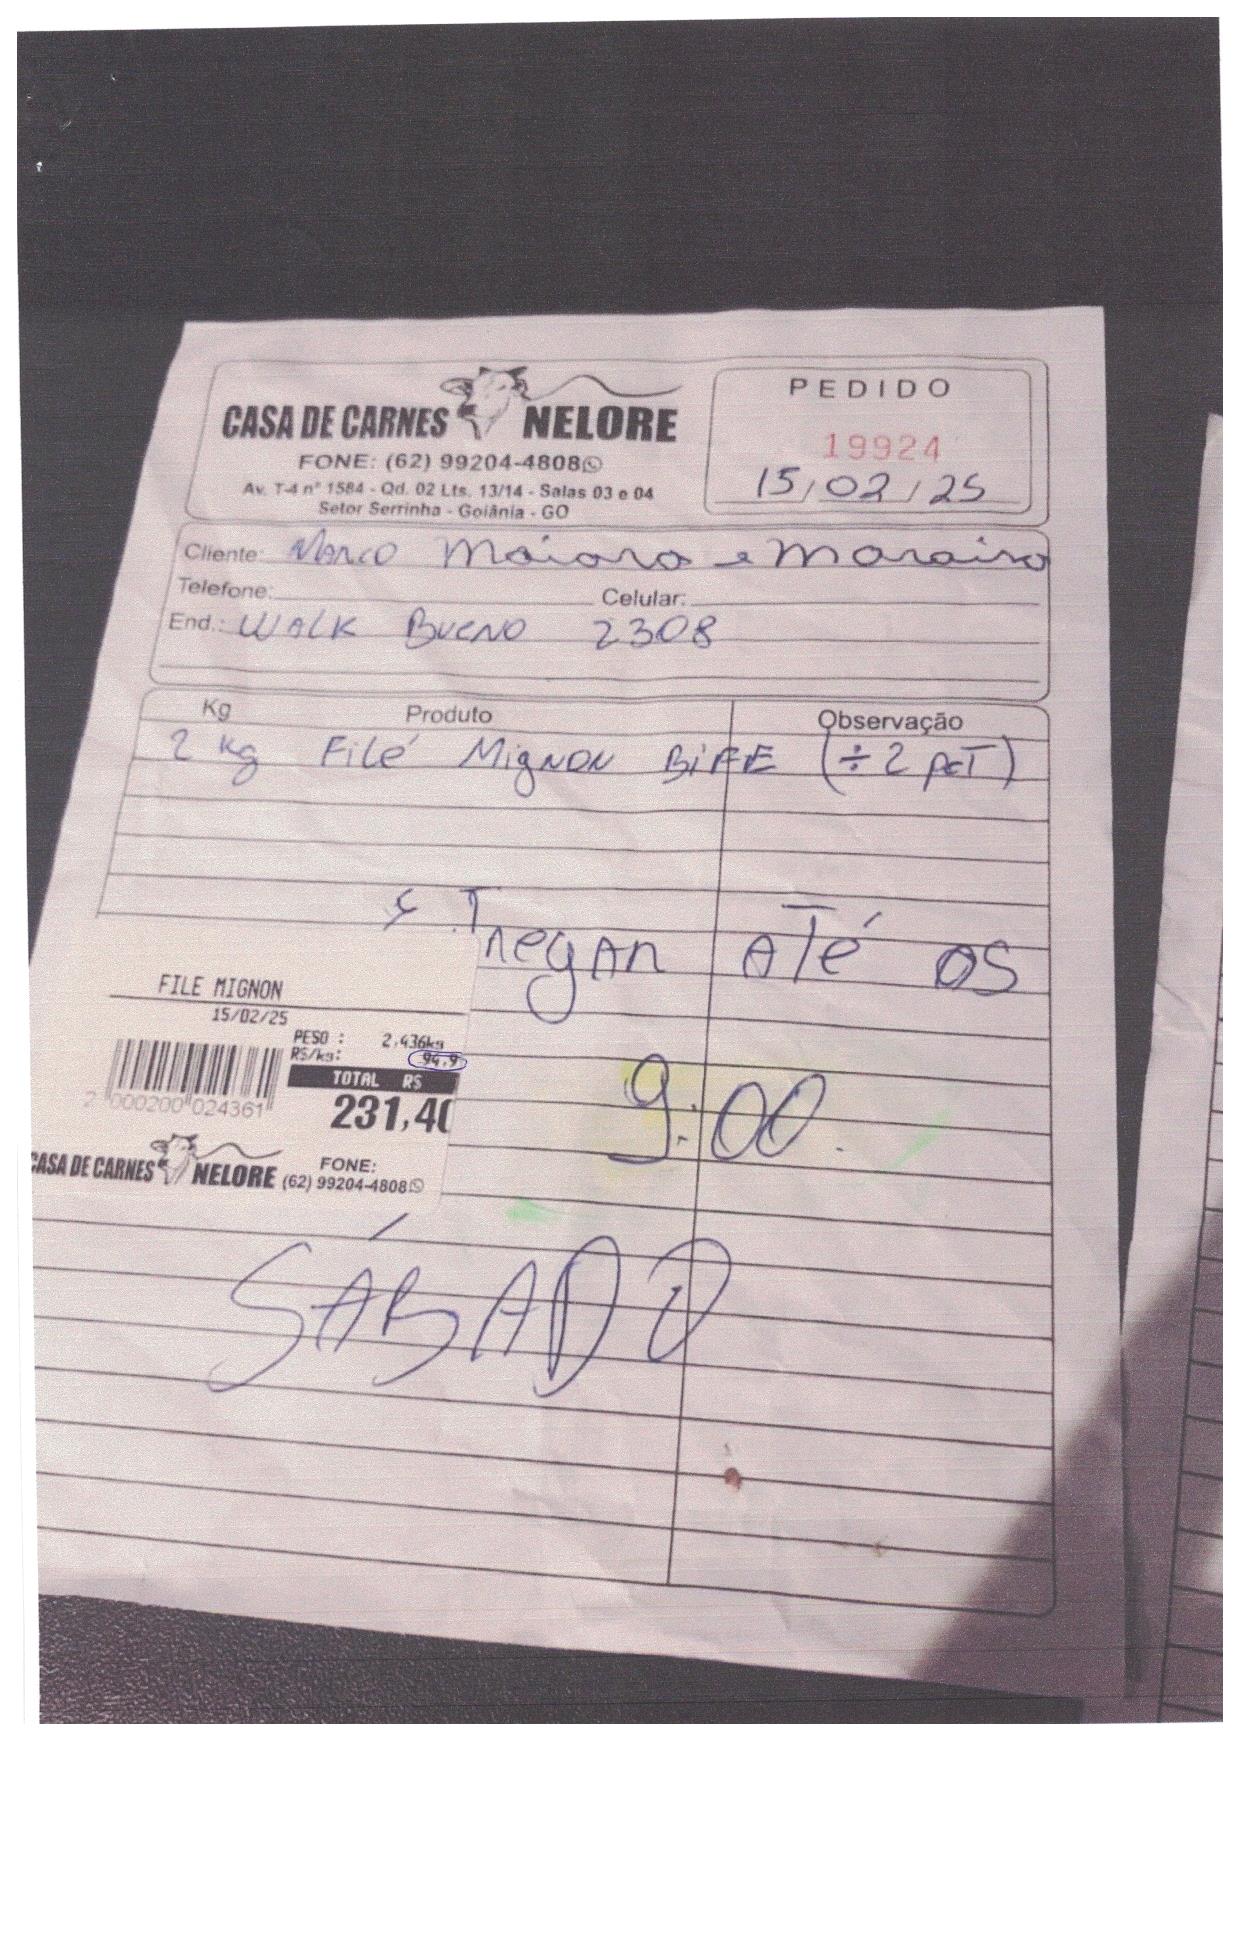 CASA DE CARNES NELORE
FONE: (62) 99204-4808
Av. T-4 nº 1584 - Qd. 02 Lts. 13/14 - Salas 03 e 04
Setor Serrinha - Goiânia - GO
PEDIDO
19924
15/02/25
Cliente: MARCO
Telefone: Celular:
End.: WALK BUENO 2308
Kg Produto Observação
2 Kg Filé Mignon BiFE (÷2 pcT)
ATÉ OS
9:00.
FILE MIGNON
15/02/25
PESO : 2,436kg
R$/kg: 94,9
TOTAL R$
231,40
2 000200 024361
CASA DE CARNES NELORE
FONE:
(62) 99204-4808
SÁBADO